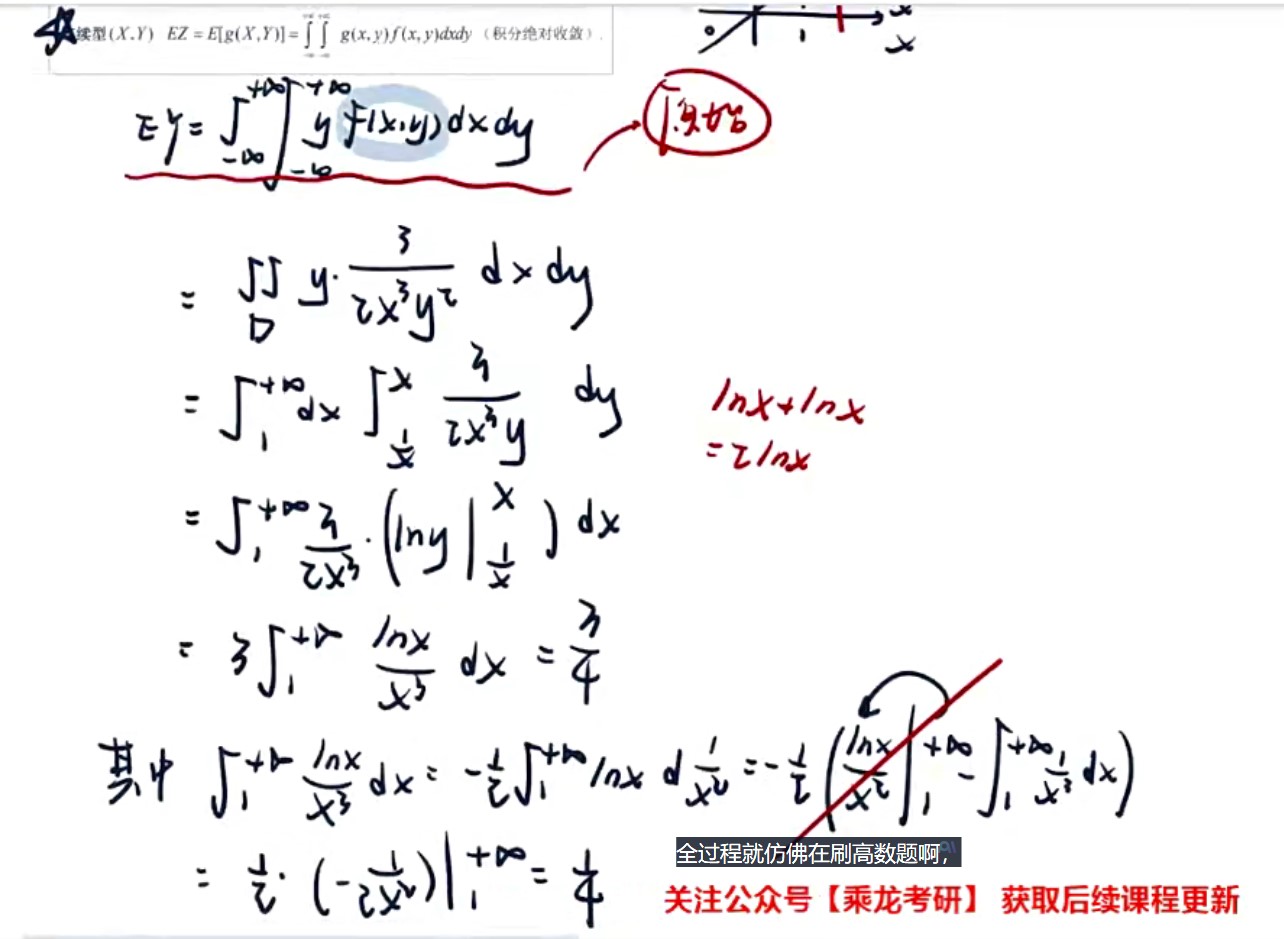 续型(X,Y) EZ = E[g(X,Y)] = ∫_{-∞}^{+∞}∫_{-∞}^{+∞} g(x,y)f(x,y)dxdy （积分绝对收敛）.
x
EY = ∫_{-∞}^{+∞}∫_{-∞}^{+∞} y f(x,y) dx dy
= ∬_D y · 3/(2x³y²) dx dy
= ∫_1^{+∞} dx ∫_{1/x}^{x} 3/(2x³y) dy
lnx+lnx
= 2lnx
= ∫_1^{+∞} 3/(2x³) · (lny |_{1/x}^{x}) dx
= 3∫_1^{+∞} lnx/x³ dx = 3/4
其中 ∫_1^{+∞} lnx/x³ dx = -1/2 ∫_1^{+∞} lnx d 1/x² = -1/2 (lnx/x² |_1^{+∞} - ∫_1^{+∞} 1/x³ dx)
= 1/2 · (-1/(2x²)) |_1^{+∞} = 1/4
全过程就仿佛在刷高数题啊，
关注公众号【乘龙考研】 获取后续课程更新